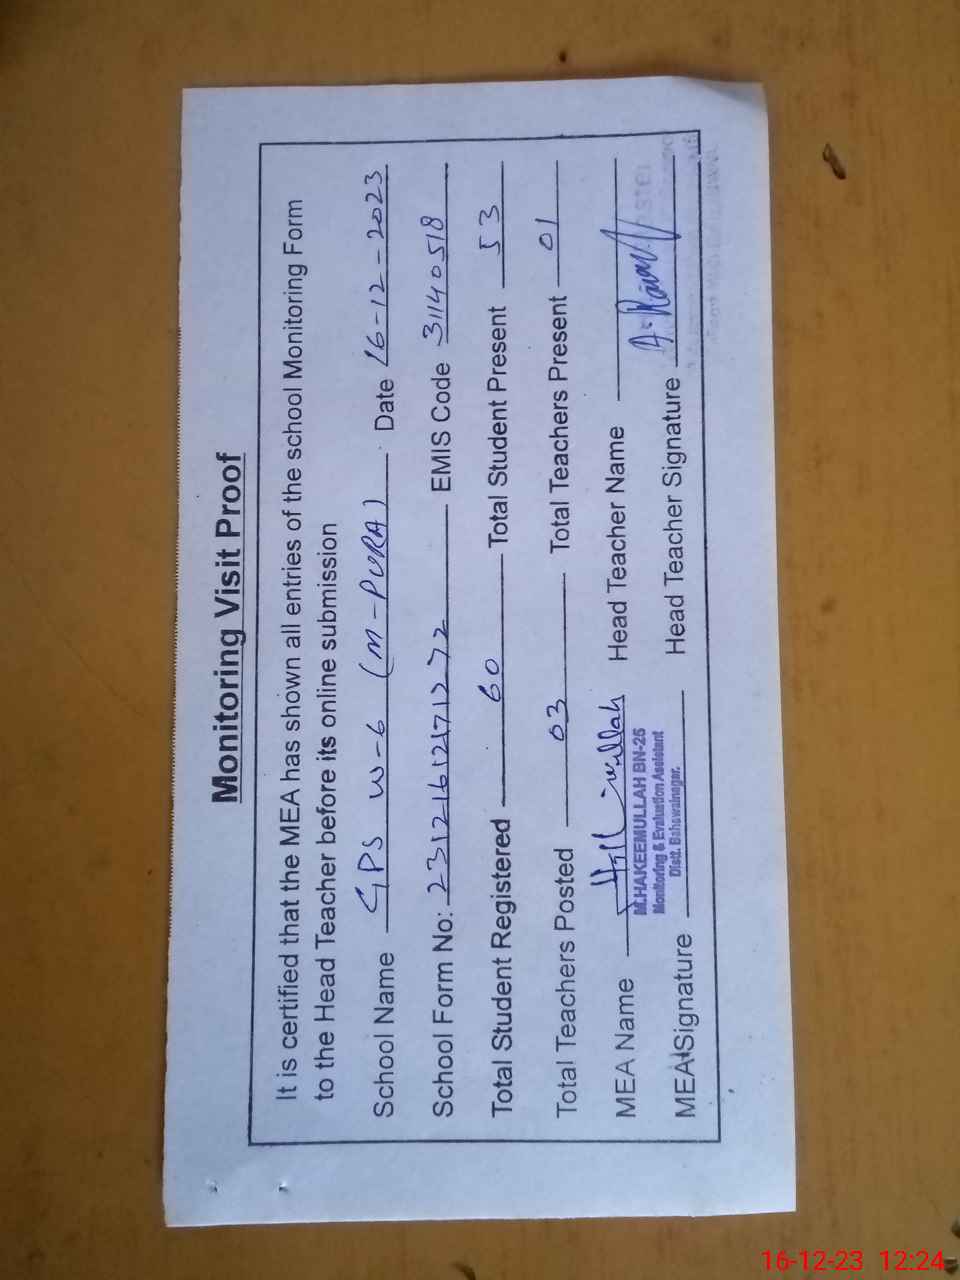 Monitoring Visit Proof
It is certified that the MEA has shown all entries of the school Monitoring Form
to the Head Teacher before its online submission
School Name GPS W-6 (M-PURA) Date 16-12-2023
School Form No: 23121612171272 EMIS Code 31140518
Total Student Registered 60 Total Student Present 53
Total Teachers Posted 03 Total Teachers Present 01
MEA Name Head Teacher Name
M.HAKEEMULLAH BN-25
Monitoring & Evaluation Assistant
Distt. Bahawalnagar.
MEA Signature Head Teacher Signature
16-12-23 12:24